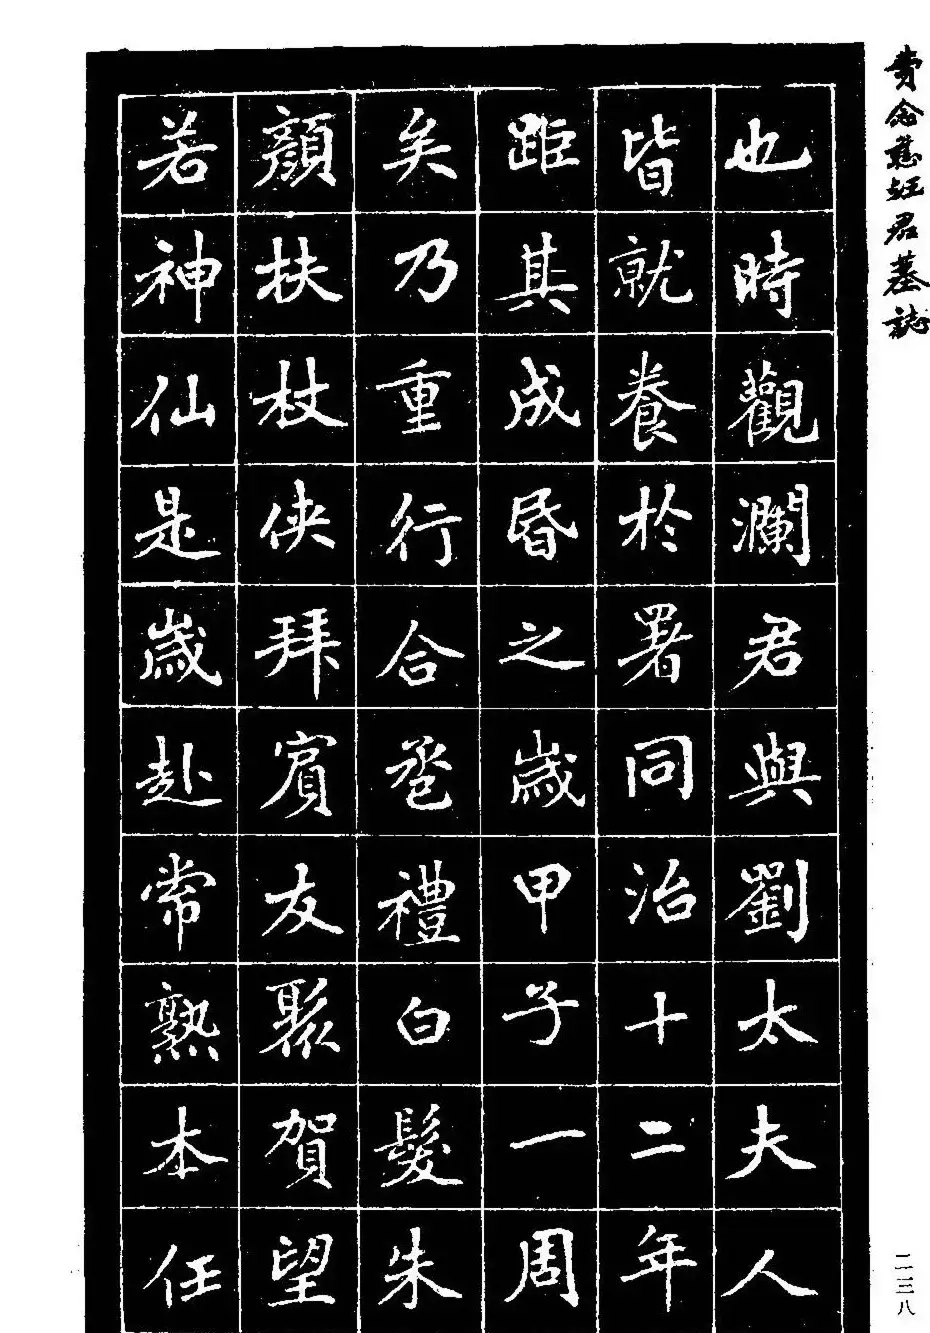 費念慈汪君墓誌
也時觀瀾君與劉太夫人
皆就養於署同治十二年
距其成昏之歲甲子一周
矣乃重行合卺禮白髮朱
顏扶杖俠拜賓友聚賀望
若神仙是歲赴常熟本任
二三八